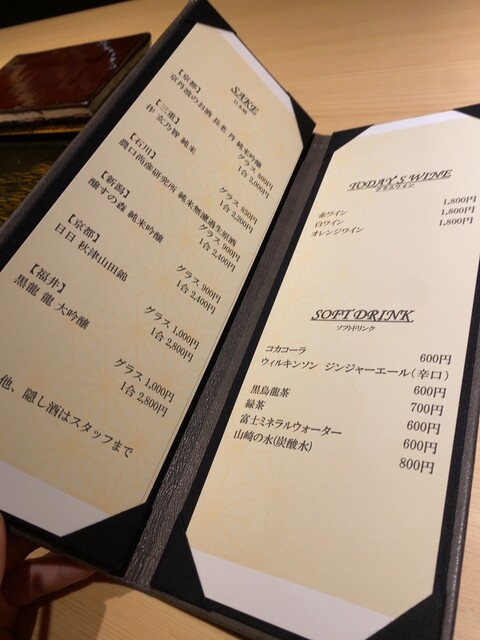 SAKE
日本酒
【京都】
京丹波のお酒 長老 丹 純米吟醸
グラス 800円
1合 2,000円
【三重】
作 玄乃智 純米
グラス 850円
1合 2,200円
【石川】
農口尚彦研究所 純米無濾過生原酒
グラス 900円
1合 2,400円
【新潟】
醸す森 純米吟醸
グラス 900円
1合 2,400円
【京都】
日日 秋津山田錦
グラス 1,000円
1合 2,800円
【福井】
黒龍 龍 大吟醸
グラス 1,000円
1合 2,800円
他、隠し酒はスタッフまで
TODAY'S WINE
グラスワイン
赤ワイン 1,800円
白ワイン 1,800円
オレンジワイン 1,800円
SOFT DRINK
ソフトドリンク
コカコーラ 600円
ウィルキンソン ジンジャーエール(辛口)
600円
黒烏龍茶 700円
緑茶 600円
富士ミネラルウォーター 600円
山崎の水(炭酸水) 800円